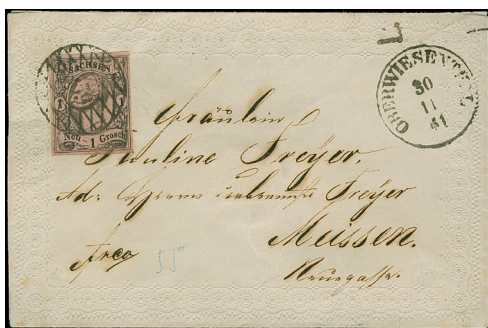 SACHSEN
1 1
Neu- 1 Grosch
OBERWIESENTHAL
30
11
61
Fräulein
Pauline Freyer,
Adr. Herrn Freyer
Meissen.
frco
Neugasse.
55